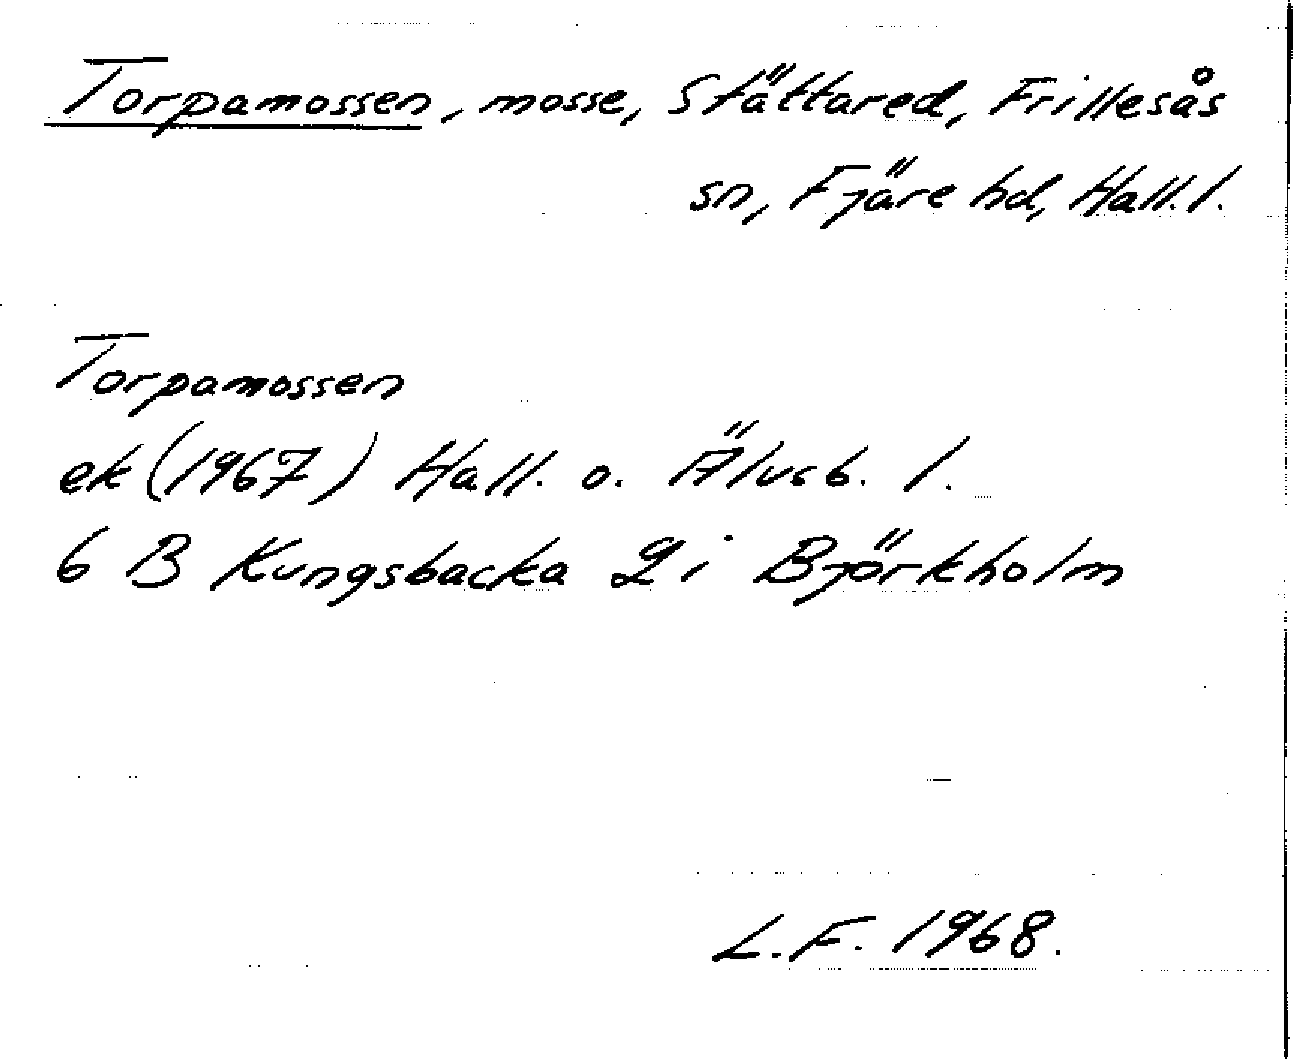 Torpamossen, mosse, Stättared, Frillesås
sn, Fjäre hd, Hall. l.
Torpamossen
ek (1967) Hall. o. Älvsb. l.
6 B Kungsbacka 2 i Björkholm
L.F. 1968.